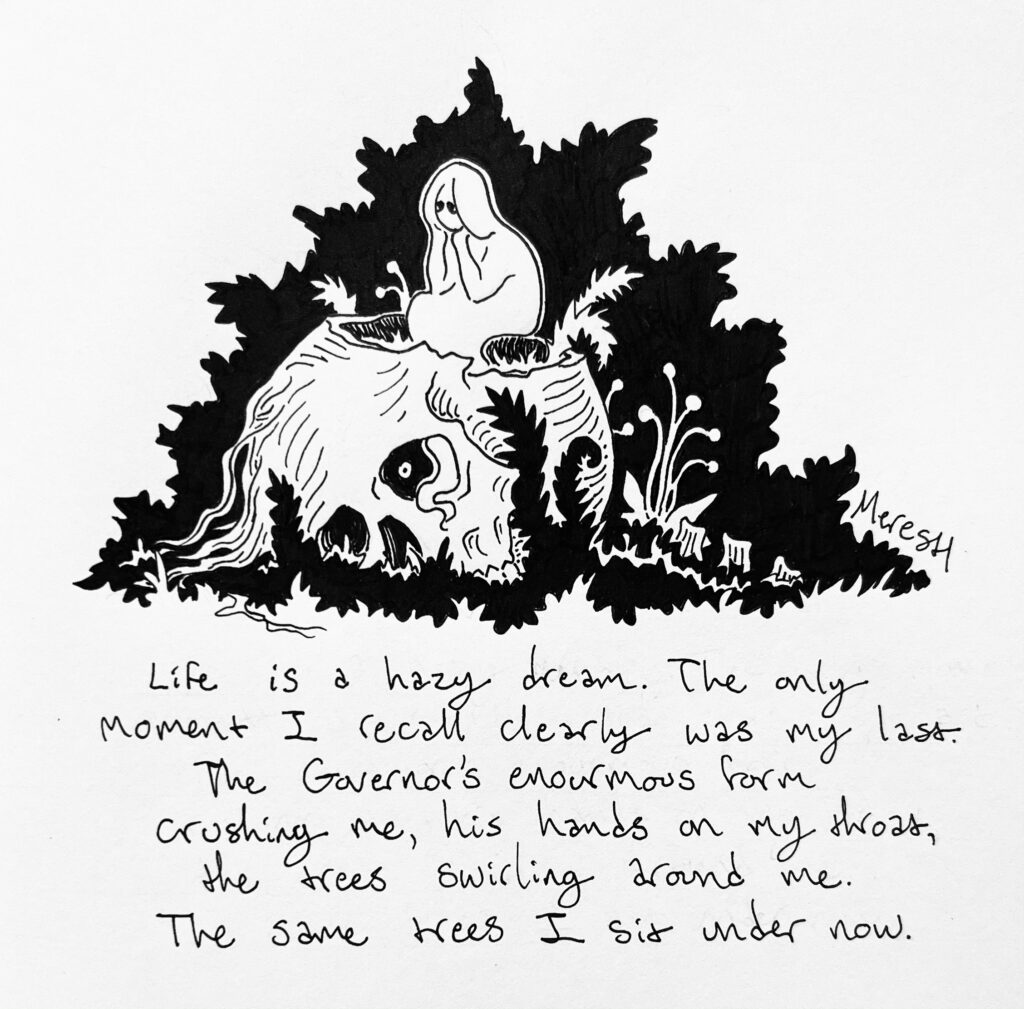 MERESH
Life is a hazy dream. The only
moment I recall clearly was my last.
The Governor's enourmous form
crushing me, his hands on my throat,
the trees swirling around me.
The same trees I sit under now.